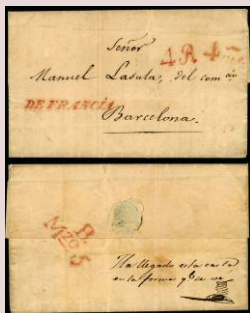 Señor
4 R 4
Manuel Lasala, del com.cio
DE FRANCIA
Barcelona.
B
Mzo 5
Ha llegado esta carta
en la forma q.e se ve